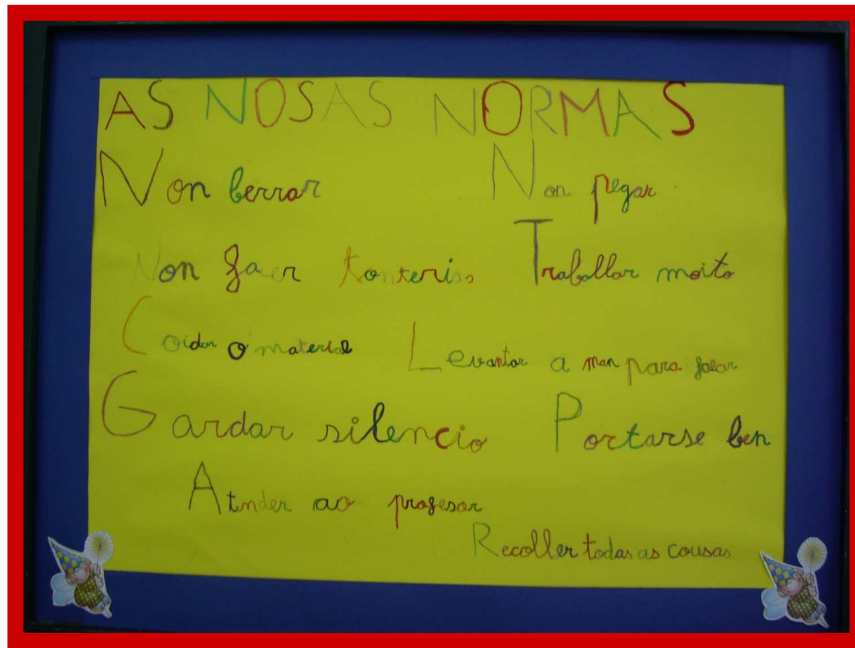 AS NOSAS NORMAS
Non berrar Non pegar
Non facer tonterias Traballar moito
Coidar o material Levantar a man para falar
Gardar silencio Portarse ben
Atender ao profesor
Recoller todas as cousas